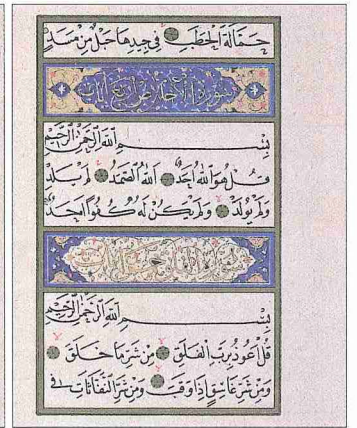 حَمَّالَةَ الْحَطَبِ فِي جِيدِهَا حَبْلٌ مِنْ مَسَدٍ
سورة الاخلاص اربع ايات
بِسْمِ اللَّهِ الرَّحْمَٰنِ الرَّحِيمِ
قُلْ هُوَ اللَّهُ أَحَدٌ اللَّهُ الصَّمَدُ لَمْ يَلِدْ
وَلَمْ يُولَدْ وَلَمْ يَكُنْ لَهُ كُفُوًا أَحَدٌ
بِسْمِ اللَّهِ الرَّحْمَٰنِ الرَّحِيمِ
قُلْ أَعُوذُ بِرَبِّ الْفَلَقِ مِنْ شَرِّ مَا خَلَقَ
وَمِنْ شَرِّ غَاسِقٍ إِذَا وَقَبَ وَمِنْ شَرِّ النَّفَّاثَاتِ فِي